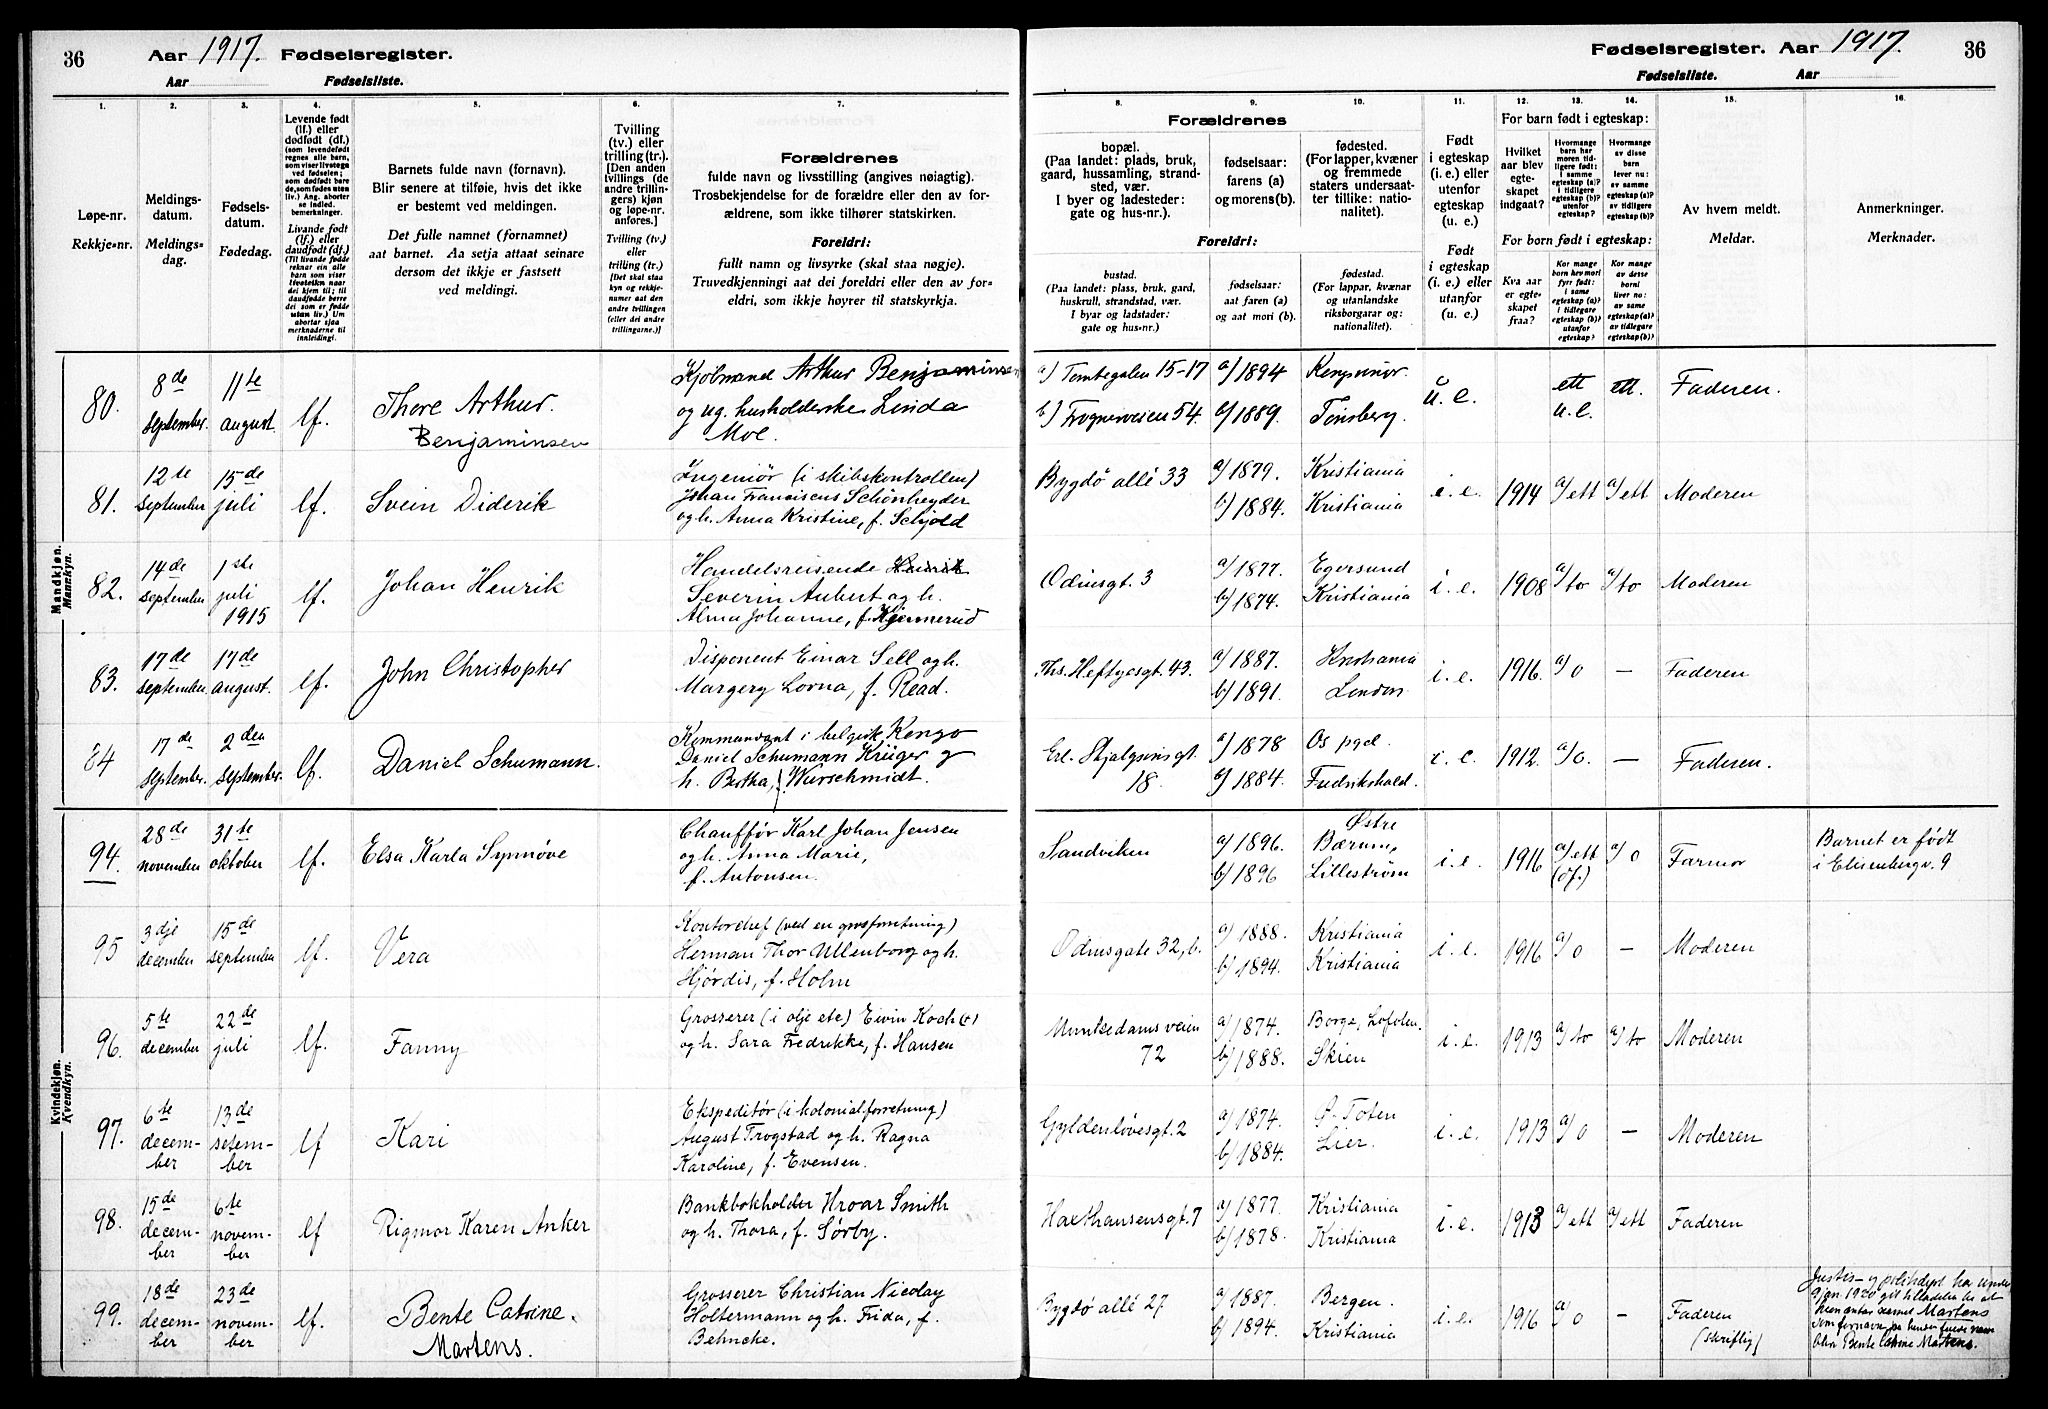 36
Aar 1917. Fødselsregister.
Aar Fødselsliste.
Fødselsregister. Aar 1917.
36
Fødselsliste. Aar
1.
2.
3.
4.
5.
6.
7.
8.
9.
10.
11.
12.
13.
14.
15.
16.
Løpe-nr.
Rekkje-nr.
Meldings-
datum.
Meldings-
dag.
Fødsels-
datum.
Fødedag.
Levende født
(lf.) eller
dødfødt (df.)
(som levendefødt
regnes alle barn,
som viser livstegn
ved fødselen;
som dødfødt bare
de, som fødes uten
liv.) Ang. aborter
se indled.
bemerkninger.
Livande fødd
(lf.) eller
daudfødt (df.)
Barnets fulde navn (fornavn).
Blir senere at tilføie, hvis det ikke
er bestemt ved meldingen.
Det fulle namnet (fornamnet)
aat barnet. Aa setja attaat seinare
dersom det ikkje er fastsett
ved meldingi.
Tvilling
(tv.) eller
trilling (tr.).
[Den anden
tvillings (de
andre trillin-
gers) kjøn
og løpe-nr.
anføres.]
Tvilling (tv.)
eller
trilling (tr.)
[Det skal staa
kyn og rekkje-
numer aat den
andre tvillingen
(eller dei andre
trillingarne.)]
Forældrenes
fulde navn og livsstilling (angives nøiagtig).
Trosbekjendelse for de forældre eller den av for-
ældrene, som ikke tilhører statskirken.
Foreldri:
fullt namn og livsyrke (skal staa nøgje).
Truvedkjenningi aat dei foreldri eller den av for-
eldri, som ikkje høyrer til statskyrkja.
Forældrenes
bopæl.
(Paa landet: plads, bruk,
gaard, hussamling, strand-
sted, vær.
I byer og ladesteder:
gate og hus-nr.).
fødselsaar:
farens (a)
og morens (b).
fødested.
(For lapper, kvæner
og fremmede
staters undersaat-
ter tillike: natio-
nalitet).
Foreldri:
bustad.
(Paa landet: plass, bruk, gard,
huskrull, strandstad, vær.
I byar og ladstader:
gate og hus-nr.)
fødselsaar:
aat faren (a)
og aat mori (b).
fødestad.
(For lappar, kvænar
og utanlandske
riksborgarar og:
nationalitet).
Født
i egteskap
(i. e.) eller
utenfor
egteskap
(u. e.)
Født
i egteskap
(i. e.) eller
utanfor
(u. e.)
For barn født i egteskap:
Hvilket
aar blev
egte-
skapet
indgaat?
Hvormange
barn har
moren tid-
ligere født:
i samme
egteskap (a)?
i tidligere
egteskap (b)?
utenfor
egteskap?
Hvormange
av disse
barn
lever nu:
av samme
egteskap (a)?
av tidligere
egteskap (b)?
For born født i egteskap:
Kva aar
er egte-
skapet
fraa?
Av hvem meldt.
Meldar.
Anmerkninger.
Merknader.
Mandkjøn.
Mannkyn.
80. 8de september. 11te august. lf. Thore Arthur. Benjaminsen
Kjølmand Arthur Benjaminsen
og ug. husholderske Linda
Moe.
a) Tomtegaten 15-17 a) 1894 Kongsvinger. u. e. ett u. e. ett. Faderen.
b) Frognerveien 54. b) 1889. Tønsberg.
81. 12te september 15de juli lf. Svein Diderik
Ingeniør (i skibskontrollen)
Johan Franciscus Schönheyder
og h. Anna Kristine, f. Schjold
Bygdø allé 33 a) 1879. Kristiania i. e. 1914 a) ett a) ett Moderen
b) 1884. Kristiania
82. 14de september 1ste juli 1915 lf. Johan Henrik
Handelsreisende Henrik
Severin Aubert og h.
Alma Johanne, f. Kjennerud
Odinsgt. 3 a) 1877. Egersund i. e. 1908 a) to a) to Moderen
b) 1874. Kristiania
83. 17de september. 17de august. lf. John Christopher
Disponent Einar Sell og h.
Margery Lorna, f. Read.
Ths. Heftyesgt. 43. a) 1887. Kristiania i. e. 1916. a) 0 — Faderen
b) 1891. London
84 17de september. 2den september. lf. Daniel Schumann.
Kommandant i belgisk Kongo
Daniel Schumann Krüger og
h. Botha, f. Würschmidt.
Erl. Skjalgsønsgt. 18. a) 1878 Os pgd. i. e. 1912. a) 0. — Faderen.
b) 1884. Fredrikshald.
Kvindekjøn.
Kvendkyn.
94. 28de november 31te oktober lf. Elsa Karla Synnøve
Chauffør Karl Johan Jensen
og h. Anna Marie,
f. Antonsen.
Sandviken a) 1896. Østre Bærum, i. e. 1916 a) ett (df.) a) 0 Farmor
b) 1896 Lillestrøm
Barnet er født
i Elisenbergv. 9
95 3dje december 15de september lf. Vera
Kontorchef (ved en grosforretning)
Herman Thor Ullenborg og h.
Hjørdis, f. Holm
Odinsgate 32, b. a) 1888. Kristiania i. e. 1916 a) 0 — Moderen
b) 1894. Kristiania
96. 5te december 22de juli lf. Fanny
Grosserer (i olje etc) Eivin Koch
og h. Sara Fredrikke, f. Hansen
Munkedamsveien 72 a) 1874. Borge, Lofoten. i. e. 1913 a) to a) to Moderen
b) 1888. Skien
97. 6te december 13de setember lf Kari
Ekspeditør (i kolonialforretning)
August Trogstad og h. Ragna
Karoline, f. Evensen.
Gyldenløvesgt. 2 a) 1874. Ø. Toten i. e. 1913 a) 0 — Moderen
b) 1884. Lier.
98. 15de december 6te november lf Rigmor Karen Anker
Bankbokholder Hroar Smith
og h. Thora, f. Sørby.
Haxthausensgt. 7 a) 1877. Kristiania i. e. 1913 a) ett a) ett Faderen
b) 1878. Kristiania
99. 18de december 23de november lf. Bente Catrine. Martens.
Grosserer Christian Nicolay
Holtermann og h. Frida, f.
Behncke.
Bygdø allé 27 a) 1887. Bergen. i. e. 1916 a) 0 — Faderen (skriftlig)
b) 1894. Kristiania
Justis- og politidept har under
9/jan. 1920 git tilladelse til at
hun antar navnet Martens
som fornavn, saa hennes fulde navn
blir Bente Catrine Martens.